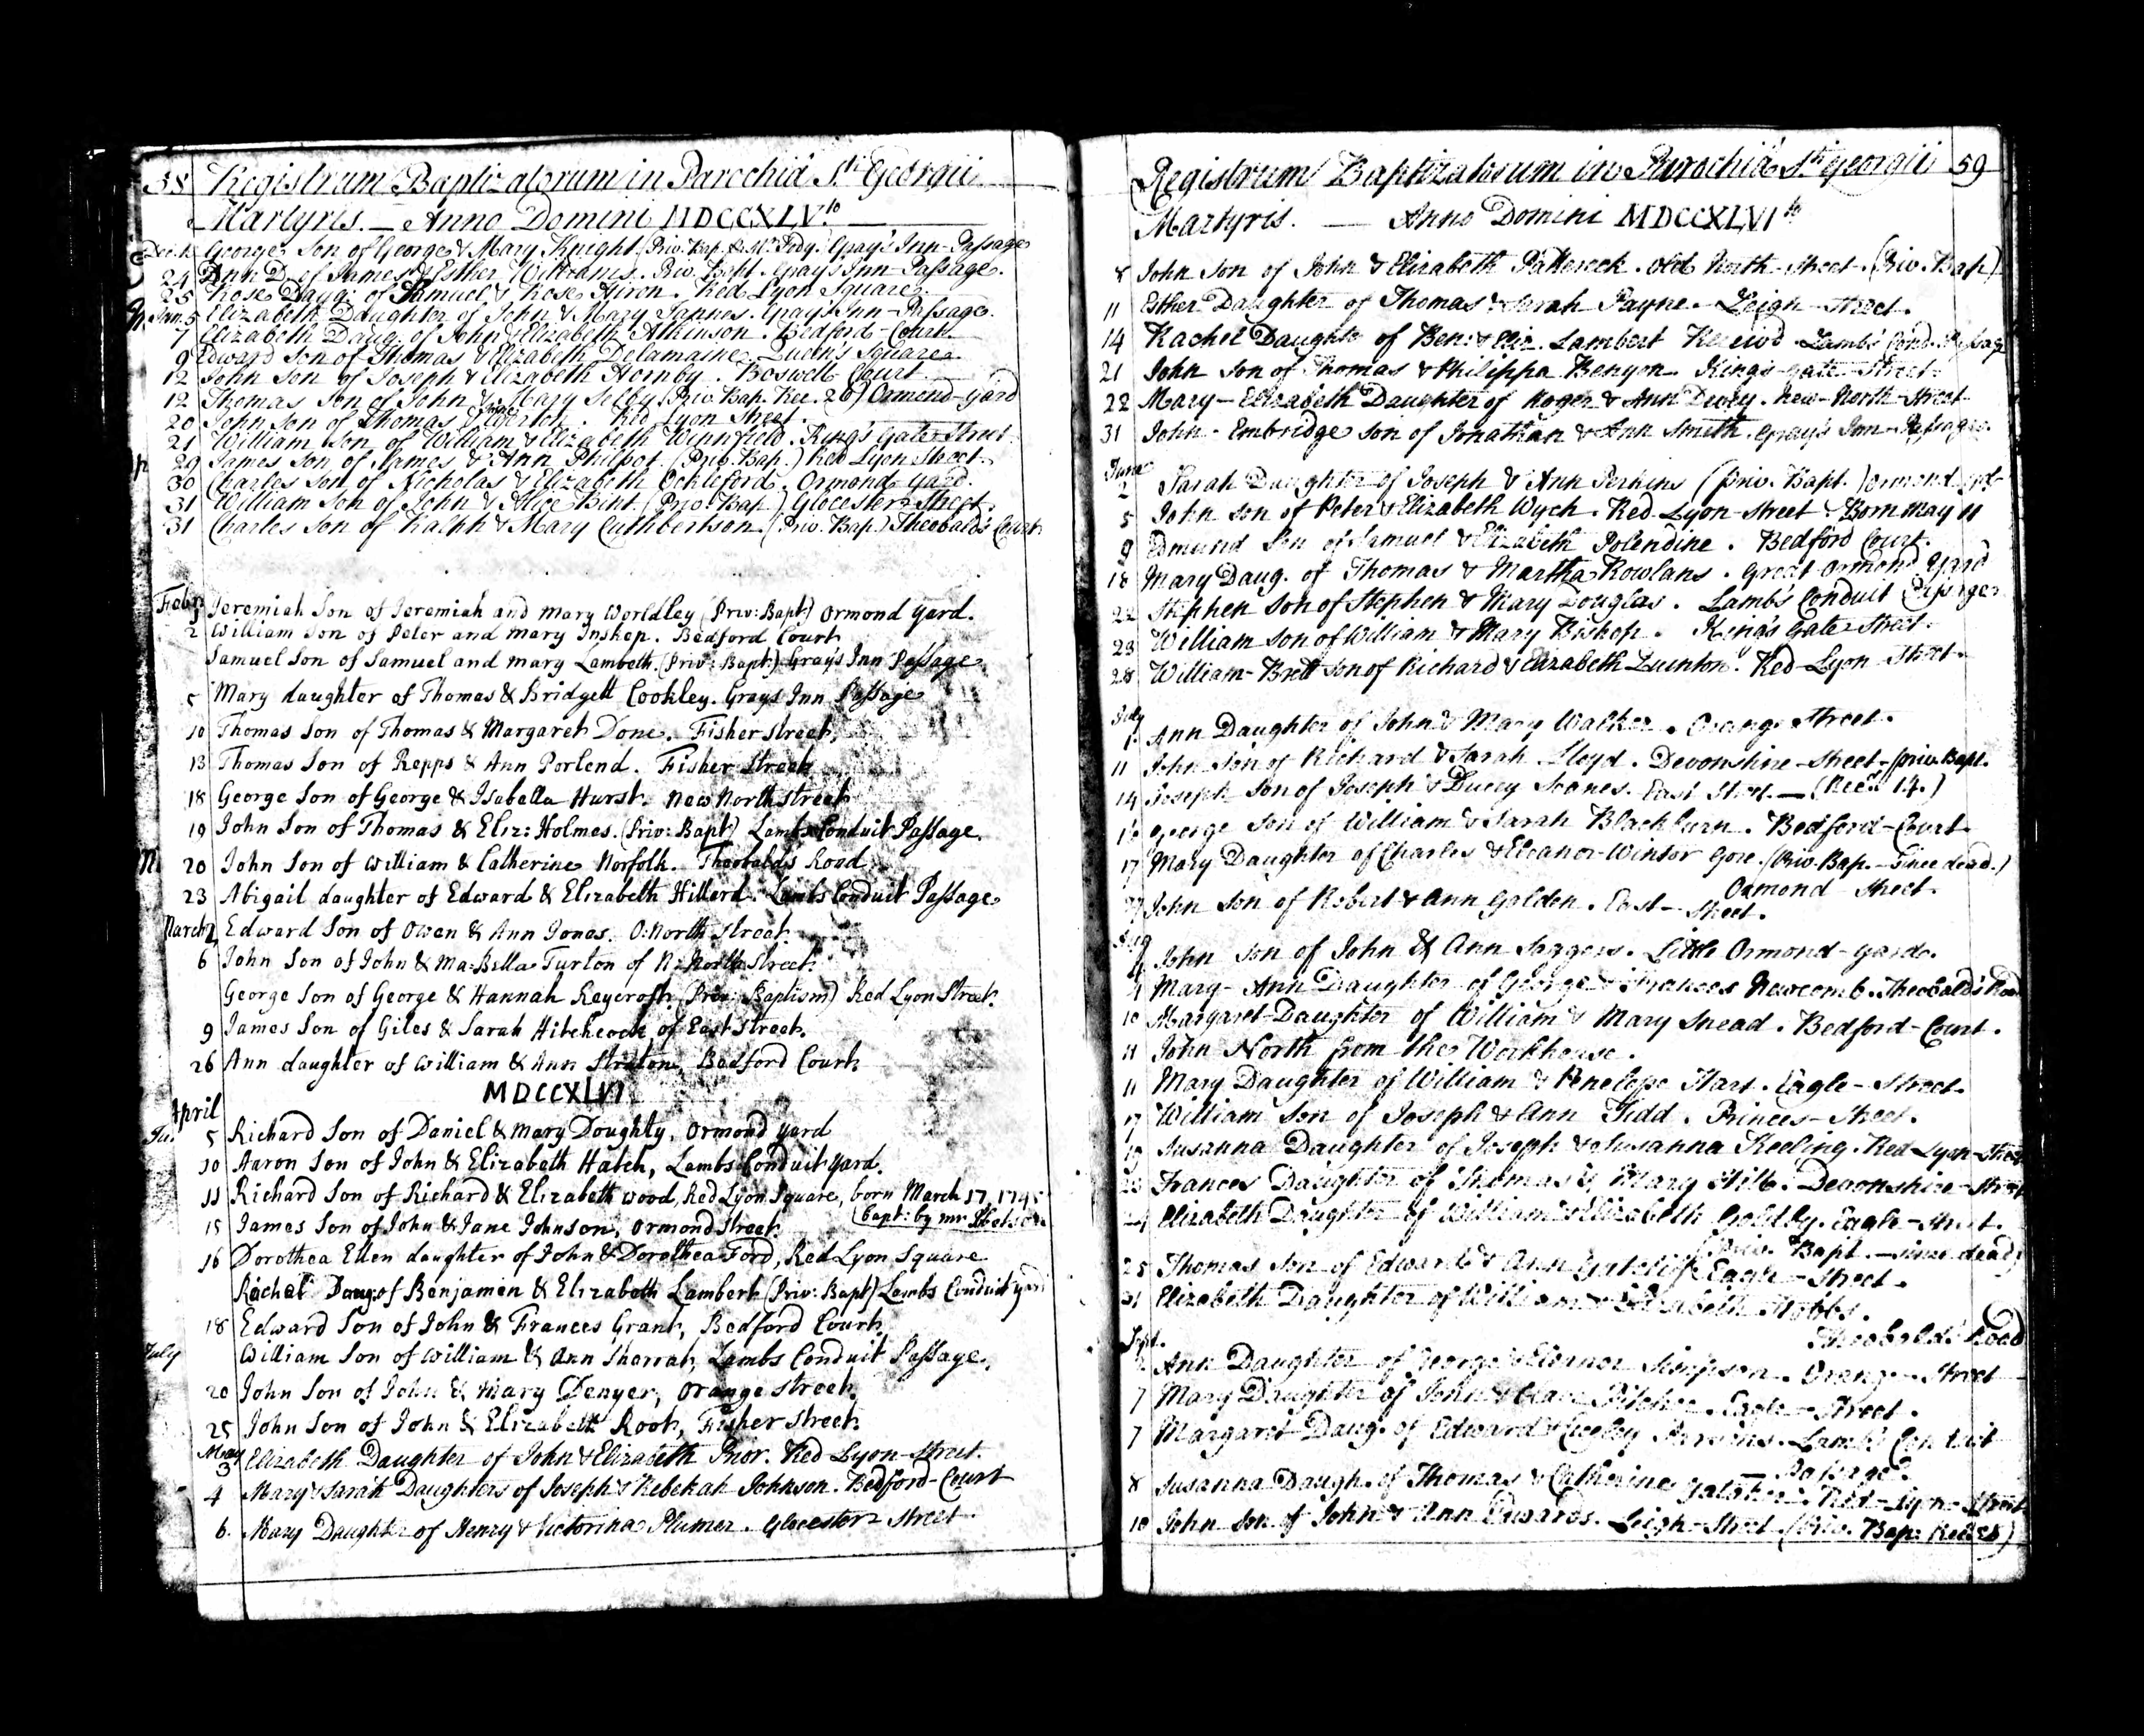 58 Registrum Baptizatorum in Parochiâ Sti Georgii
Martyris. — Anno Domini MDCCXLVto
George Son of George & Mary Knight (Priv. Bap. Gray's Inn-Passage
24 Ann D. of James & Esther Williams. Priv. Bapt. Gray's Inn Passage.
25 Rose Daug. of Samuel & Rose Hiron. Red Lyon Square.
Jan. 5 Elizabeth Daughter of John & Mary Gray's Inn-Passage.
7 Elizabeth Daug. of John & Elizabeth Atkinson. Bedford-Court.
9 Edward Son of Thomas & Elizabeth Delamaine. Queen's Square.
12 John Son of Joseph & Elizabeth Hornby. Boswell Court.
12 Thomas Son of John & Mary Selby (Priv. Bap. Rec. 26) Ormond-yard
20 John Son of Thomas Red Lyon Street.
21 William Son of William & Elizabeth Winnfield. King's Gate Street.
29 James Son of James & Ann Philpot. (Priv. Bap.) Red Lyon Street.
30 Charles Son of Nicholas & Elizabeth Ockleford. Ormond yard.
31 William Son of John & Alice Bint (Priv. Bap) Glocester Street.
31 Charles Son of Ralph & Mary Cuthbertson. (Priv. Bap) Theobald's Court
Febry Jeremiah Son of Jeremiah and Mary Worldley (Priv: Bapt) Ormond yard.
2 William Son of Peter and Mary Inskep. Bedford Court
Samuel Son of Samuel and mary Lambeth. (Priv: Bapt:) Gray's Inn Passage
5 Mary daughter of Thomas & Bridgett Cookley. Grays Inn Passage
10 Thomas Son of Thomas & Margaret Done. Fisher street.
13 Thomas Son of Repps & Ann Porlend. Fisher Street
18 George Son of George & Isabella Hurst. New North street
19 John Son of Thomas & Eliz: Holmes. (Priv: Bapt) Lambs Conduit Passage.
20 John Son of William & Catherine Norfolk. Theobalds Road
23 Abigail daughter of Edward & Elizabeth Hillerd. Lambs Conduit Passage
March 2 Edward Son of Owen & Ann Jones. O: North Street
6 John Son of John & Ma: Bella Turton of N: North Street.
George Son of George & Hannah Reycroft (Priv: Baptism) Red Lyon Street.
9 James Son of Giles & Sarah Hitchcock of East Street.
26 Ann daughter of William & Ann Straton, Bedford Court
MDCCXLVI
April
5 Richard Son of Daniel & Mary Doughty, Ormond yard
10 Aaron Son of John & Elizabeth Hatch, Lambs Conduit yard.
11 Richard Son of Richard & Elizabeth Wood, Red Lyon Square, born March 17, 1745
(bapt: by mr
15 James Son of John & Jane Johnson, Ormond Street.
16 Dorothea Ellen daughter of John & Dorothea Ford, Red Lyon Square
Rachel Daug: of Benjamin & Elizabeth Lambert (Priv: Bapt) Lambs Conduit yard
18 Edward Son of John & Frances Grant, Bedford Court.
July William Son of William & Ann Sharrah, Lambs Conduit Passage.
20 John Son of John & Mary Denyer, Orange street.
25 John Son of John & Elizabeth Root, Fisher Street.
May
3 Elizabeth Daughter of John & Elizabeth Prior. Red Lyon-Street.
4 Mary & Sarah Daughters of Joseph & Rebekah Johnson. Bedford-Court
6. Mary Daughter of Henry & Victorina Plumer. Glocester Street.
Registrum Baptizatorum in Parochiâ Sti Georgii 59
Martyris. — Anno Domini MDCCXLVIto
8 John Son of John & Elizabeth Patterock. Old North-Street. (Priv. Bap)
11 Esther Daughter of Thomas & Sarah Payne. Leigh-Street.
14 Rachel Daughtr of Ben: & Eliz. Lambert Receiv'd Lamb's Cond. Passage
21 John Son of Thomas & Philippa Benyon. King's-gate-Street.
22 Mary-Elizabeth Daughter of Roger & Ann Dewey. New-North-Street.
31 John-Embridge Son of Jonathan & Ann Smith. Gray's Inn-Passage.
June
2 Sarah Daughter of Joseph & Ann Perkins (priv. Bapt.) Ormond yd.
5 John Son of Peter & Elizabeth Wych. Red Lyon-Street. Born May 11
9 Edmund Son of Samuel & Elizabeth Polendine. Bedford Court.
18 Mary Daug. of Thomas & Martha Rowlans. Great Ormond Yard
22 Stephen Son of Stephen & Mary Douglas. Lamb's Conduit Passage
23 William Son of William & Mary Bishop. King's Gate Street.
28 William-Brett Son of Richard & Elizabeth Quinton. Red-Lyon Street.
July
1. Ann Daughter of John & Mary Walker. Orange Street.
11 John Son of Richard & Sarah Lloyd. Devonshire-Street-(priv. Bapt.
14 Joseph Son of Joseph & East Street. — (Rec'd 14.)
George Son of William & Sarah Blackburn. Bedford-Court
17 Mary Daughter of Charles & Eleanor-Winsor Gore. (Priv. Bap. - Since dead.)
Ormond Street.
27 John Son of Robert & Ann Golden. East-Street.
Aug
John Son of John & Ann Saggers. Little Ormond-yard.
Mary-Ann Daughter of George & Frances Newcomb. Theobald's Road
10 Margaret Daughter of William & Mary Snead. Bedford-Court.
11 John North from the Workhouse.
11 Mary Daughter of William & Penelope Hart. Eagle-Street.
17 William Son of Joseph & Ann Tidd. Princes-Street.
Susanna Daughter of Joseph & Susanna Keeling. Red Lyon-Street
Frances Daughter of Thomas & Mary Devonshire-Street
24 Elizabeth Daughter of William & Elizabeth Eagle-Street.
(Priv. Bapt. — since dead)
25 Thomas Son of Edward & Ann Eagle-Street.
31 Elizabeth Daughter of William & Elizabeth Stobbs.
Theobald's Road
Sept.
2 Ann Daughter of George & Simpson. Orange-Street
7 Mary Daughter of John & Pitcher. Eagle-Street.
7 Margaret Daug. of Edward & Lamb's Conduit
— Passage.
8 Susanna Daugh. of Thomas & Catherine Red-Lyon-Street
10 John Son of John & Ann Edwards. Leigh-Street (Priv. Bap: